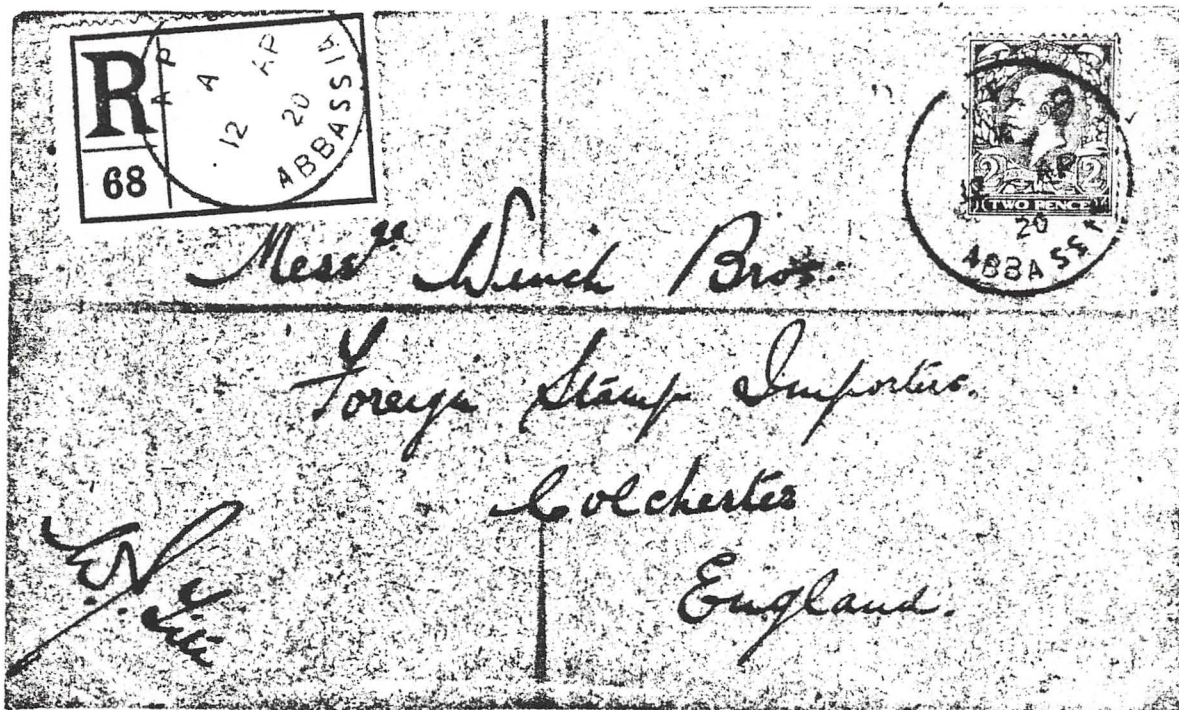 R
68
A P
A
AP
12
20
ABBASSIA
2 2
TWO PENCE
AP
20
ABBASSIA
Messrs Wench Bros.
Foreign Stamp Importers.
Colchester
England.